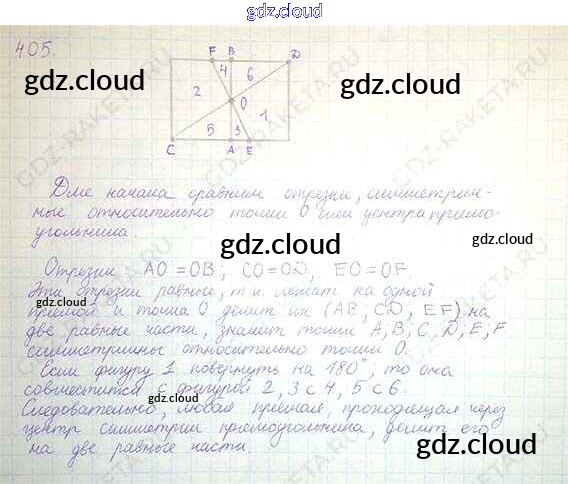 gdz.cloud
405.
F B D
4 6
2
O
1
5 3
C A E
gdz.cloud
gdz.cloud
GDZ-RAKETA.RU
Для начала сравним отрезки, симметрич-
ные относительно точки O или центра прямо-
угольника.
gdz.cloud
gdz.cloud
Отрезки AO = OB; CO = OD, EO = OF.
Эти отрезки равные, т.к. лежат на одной
прямой и точка O делит их (AB, CD, EF) на
две равные части, значит точки A, B; C, D; E; F
симметричны относительно точки O.
gdz.cloud
gdz.cloud
Если фигуру 1 повернуть на 180°, то она
совместится с фигурой 2, 3 с 4, 5 с 6.
gdz.cloud
gdz.cloud
Следовательно, любая прямая, проходящая через
центр симметрии прямоугольника, делит его
на две равные части.
gdz.cloud
gdz.cloud